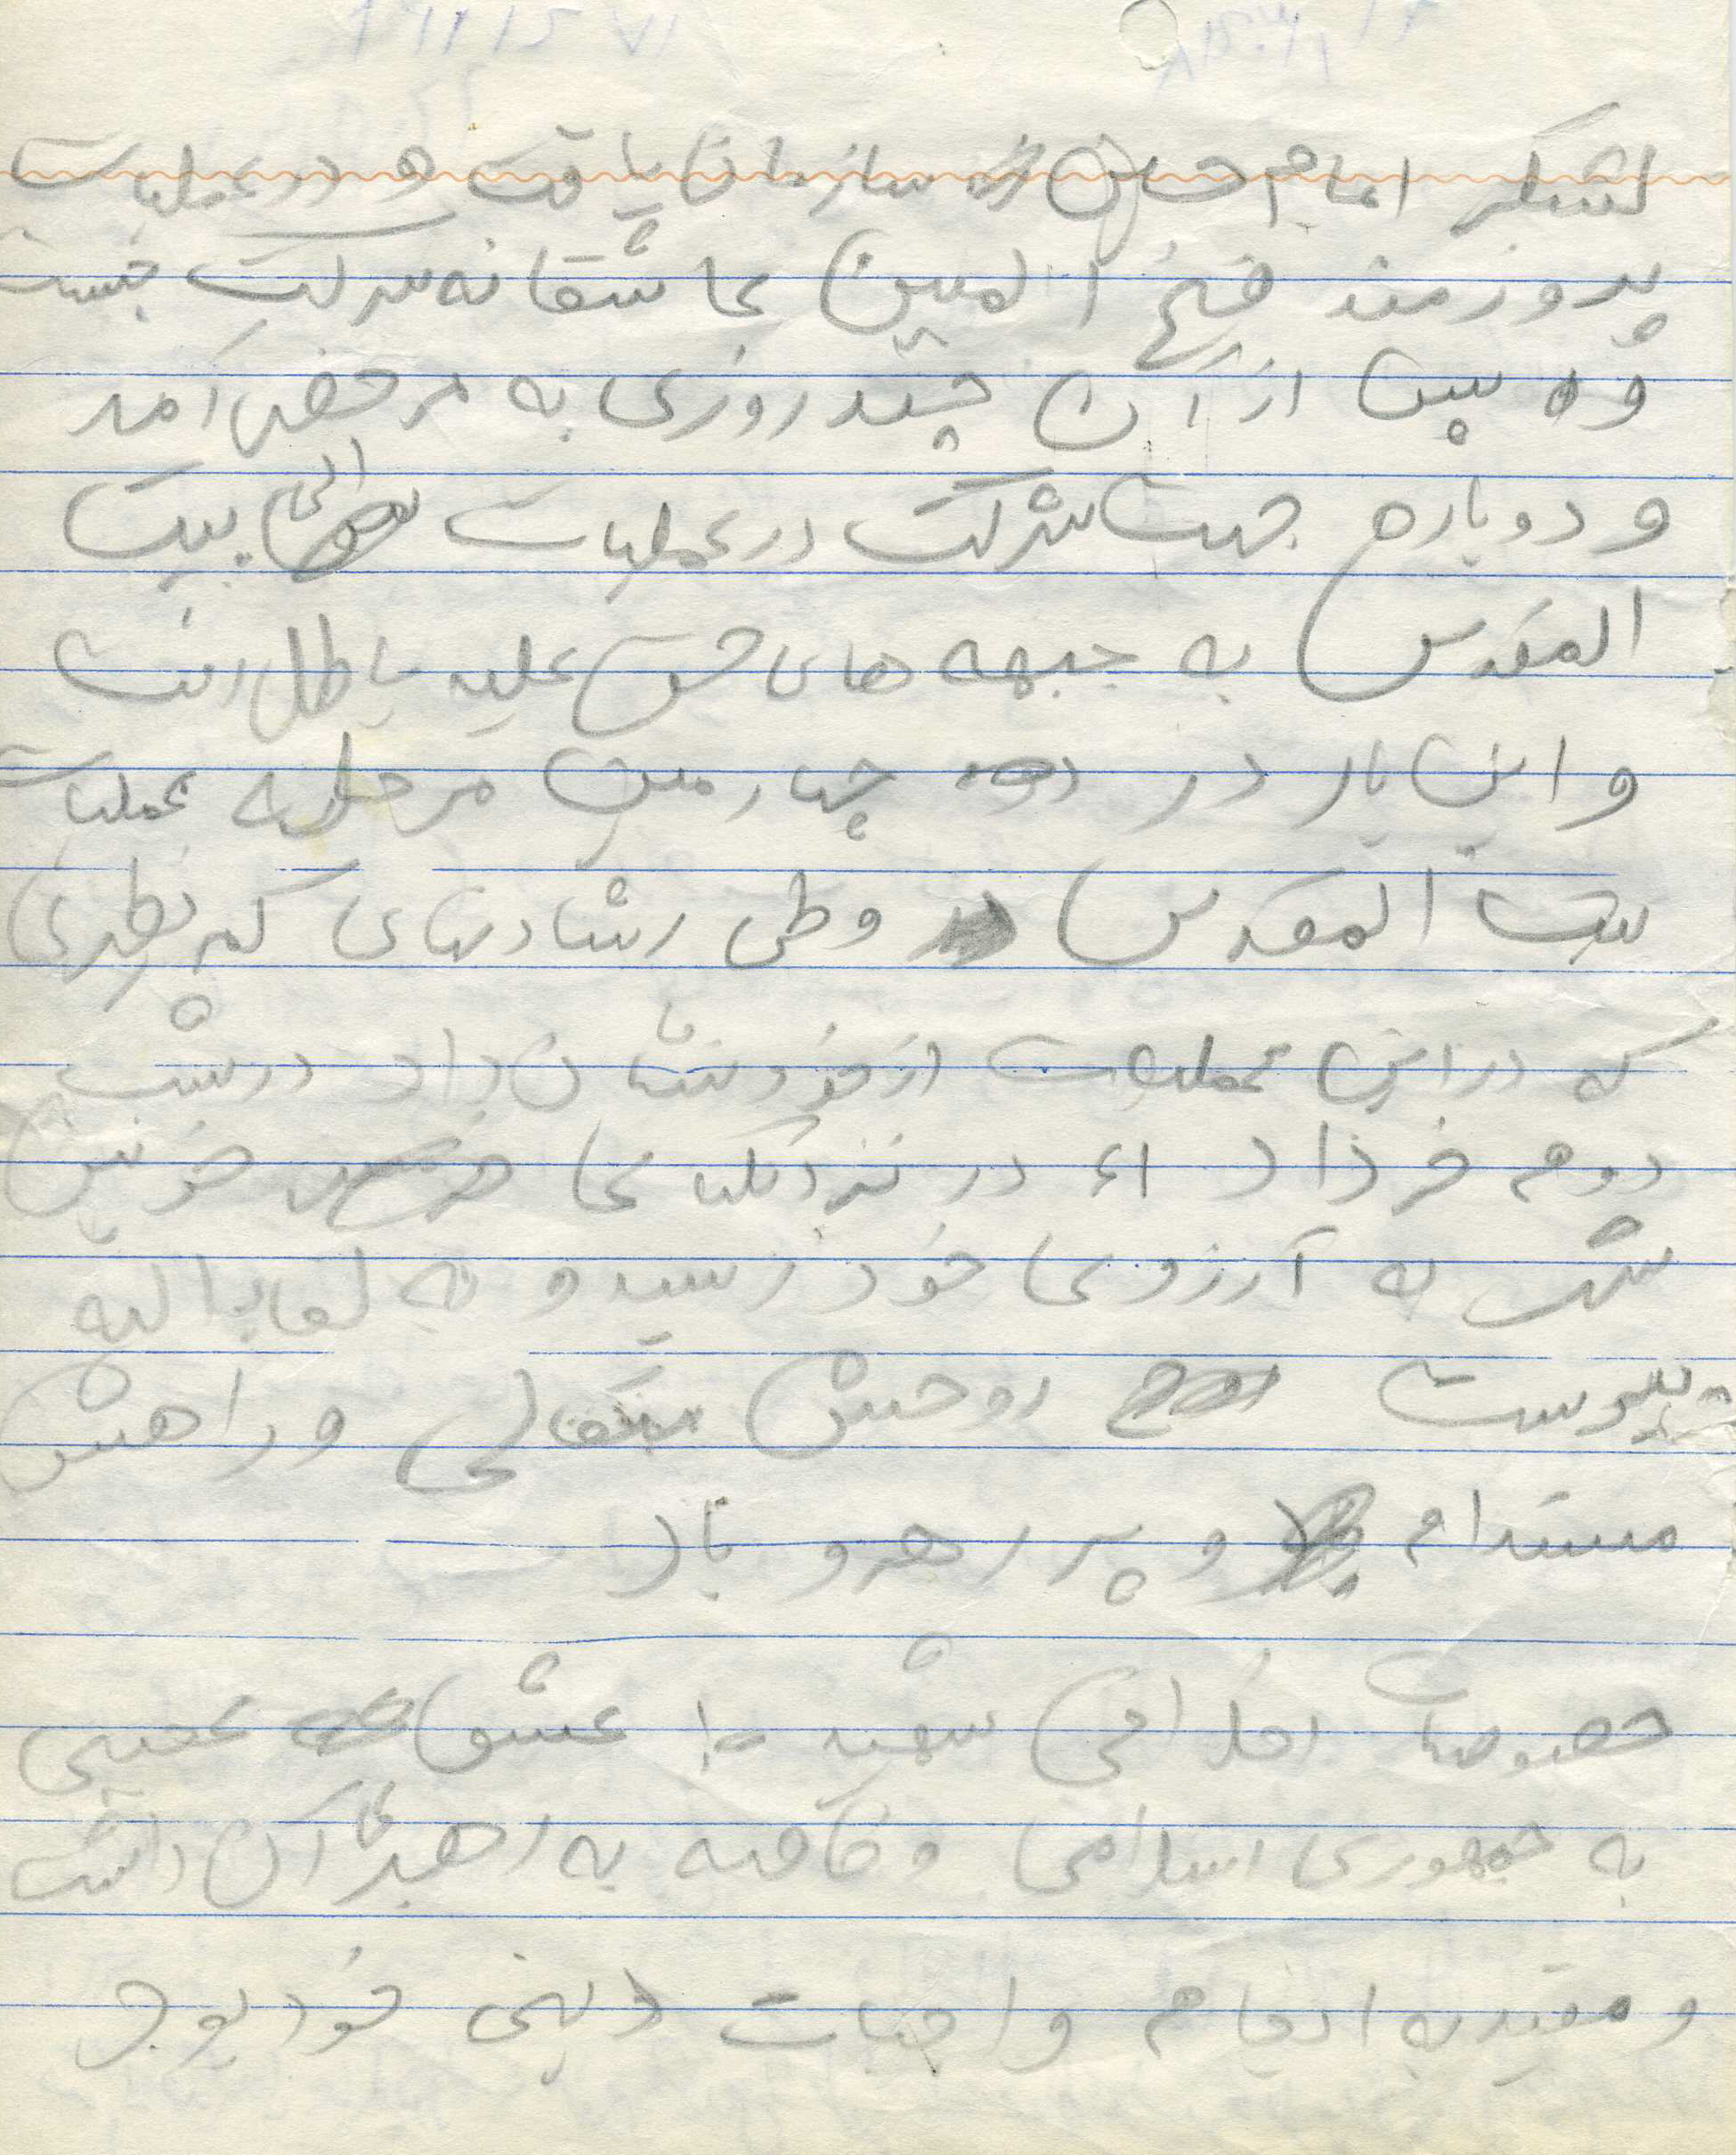 لشکر امام حسین سازمان یافت و در عملیات
پیروزمند فتح المبین عاشقانه شرکت جست
و پس از آن چند روزی به مرخصی آمد
و دوباره جهت شرکت در عملیات الی بیت
المقدس به جبهه های حق علیه باطل رفت
و این بار در چهارمین مرحله عملیات
بیت المقدس وطی رشادتهای کم نظیری
که در این عملیات از خود نشان داد در شب
دوم خرداد ۶۱ در نزدیکیهای خونین
شهر به آرزوی خود رسید و به لقاء الله
پیوست روحش متعالی و راهش
مستدام و پر رهرو باد
خصوصیات اخلاقی شهید ۱۰ عشق عجیبی
به جمهوری اسلامی و خاصه به رهبری آن داشت
و مقید به انجام واجبات دینی خود بود